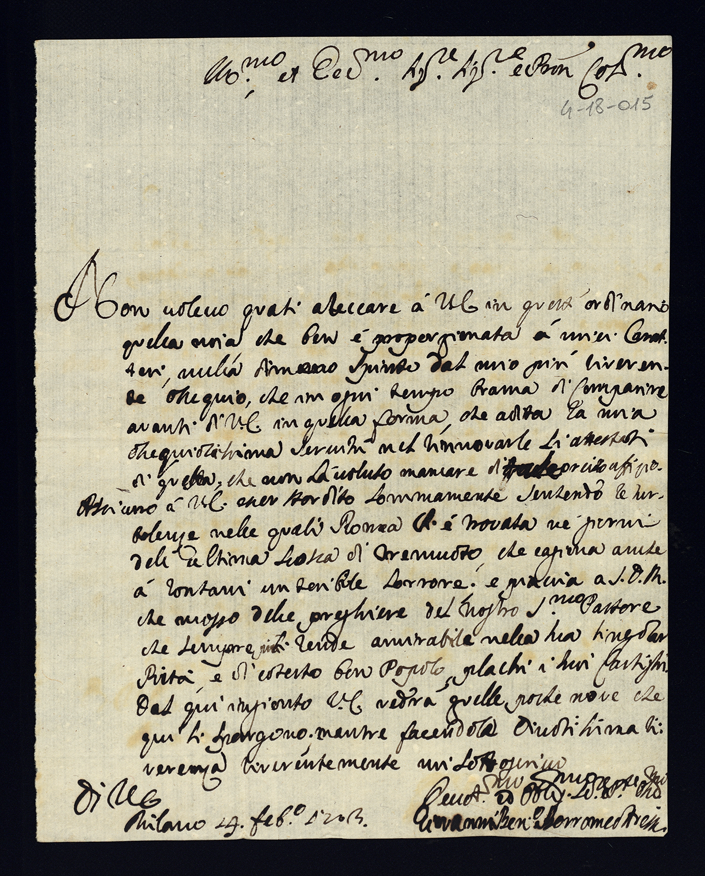 Ill.mo et Ecc.mo Sig.re Sig.re e Pron Col.mo
4-18-015
Non volevo quasi à V.E. in quest' ordinario
quella noia che ben è proporzionata à miei Carat-
teri, nulla dimeno spinto dal mio più riveren-
te Ossequio, che in ogni tempo brama di Comparire
avanti di V.E. in quella forma, che la mia
ossequiosissima Servitù nel rinnovarle li attestati
di quella, che non hà voluto mancare di
Assicuro à V.E. esser stordito sommamente sentendo le tur-
bolenze nelle quali Roma si è trovata nè giorni
dell' ultima scossa di Tremuoto, che cagiona anche
à lontani un teribile e piaccia a S.D.M.
che mosso delle preghiere del Nostro S.mo Pastore
che sempre si rende amirabile nella sua singolar
Pietà, e di cotesto ben Popolo, plachi i suoi Castighi
Dal qui ingionto V.E. vedrà quelle poche nove che
qui si spargono. mentre facendola Divotissima ri-
verenza riverentemente mi sottoscrivo
Di V.E.
Milano 14. feb.o 1703.
Devot.mo ed Obblig.mo
Giovanni Ben.o Borromeo Arese